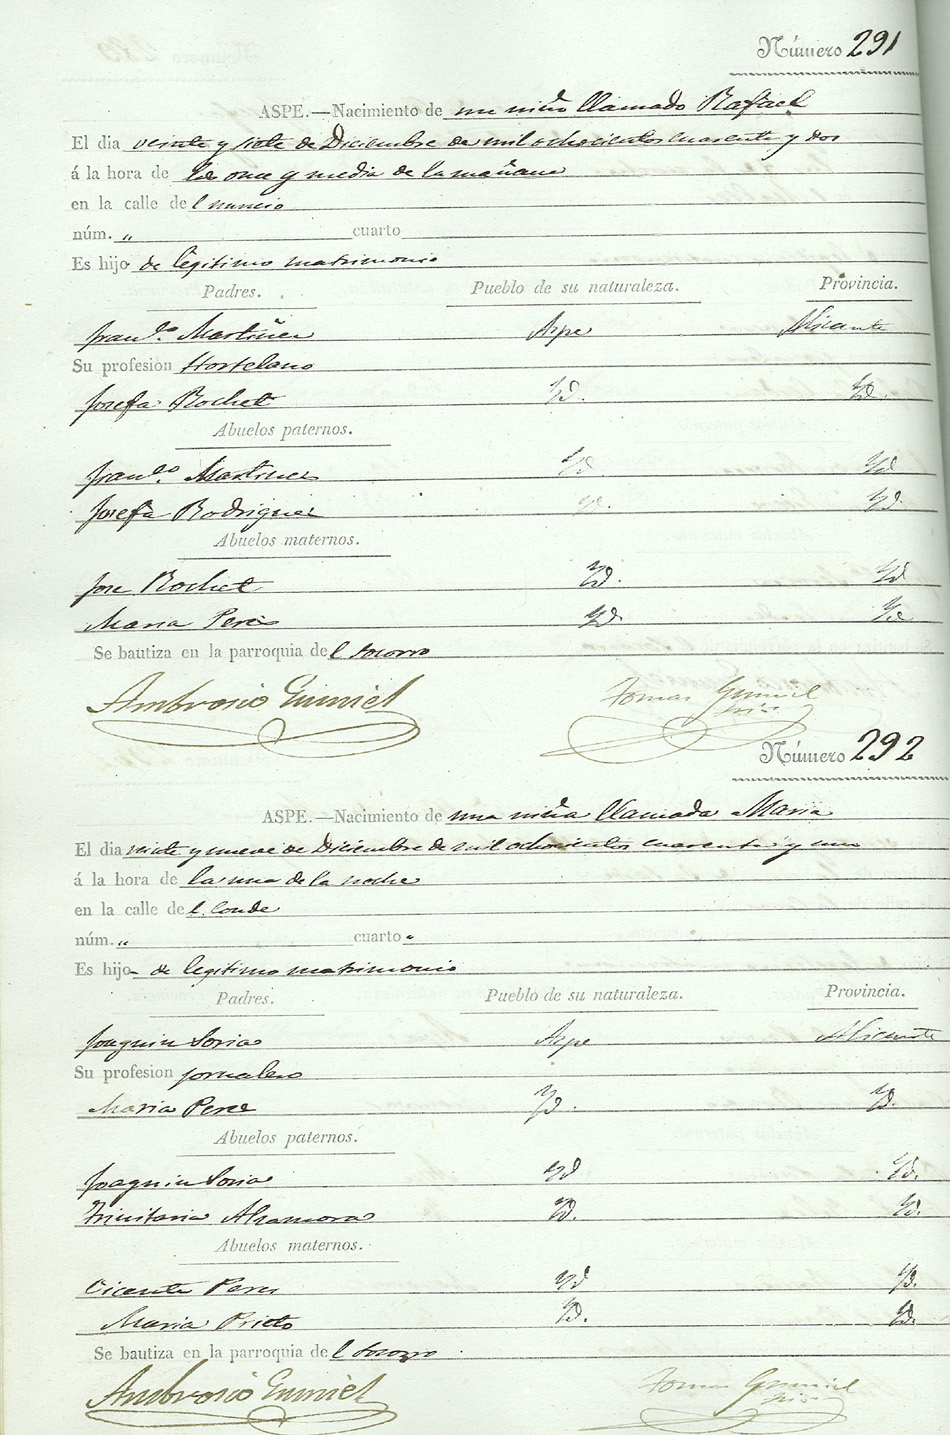 Número 291
ASPE.—Nacimiento de un niño llamado Rafael
El dia veinte y siete de Diciembre de mil ochocientos cuarenta y dos
á la hora de las once y media de la mañana
en la calle del nuncio
núm. „ cuarto
Es hijo de legitimo matrimonio
Padres. Pueblo de su naturaleza. Provincia.
Franco. Martinez Aspe Alicante
Su profesion Hortelano
Josefa Rochet Yd. Yd.
Abuelos paternos.
Franco. Martinez Yd. Yd
Josefa Rodriguez Yd. Yd.
Abuelos maternos.
Jose Rochet Yd. Yd
Maria Perez Yd. Yd
Se bautiza en la parroquia del Socorro
Ambrosio Guiniel Tomas Guiniel
Número 292
ASPE.—Nacimiento de una niña llamada Maria
El dia veinte y nueve de Diciembre de mil ochocientos cuarenta y uno
á la hora de la una de la noche
en la calle del Conde
núm. „ cuarto „
Es hijo de legitimo matrimonio
Padres. Pueblo de su naturaleza. Provincia.
Joaquin Soria Aspe Alicante
Su profesion jornalero
Maria Perez Yd. Yd.
Abuelos paternos.
Joaquin Soria Yd Yd.
Trinitaria Yd. Yd.
Abuelos maternos.
Vicente Perez Yd Yd.
Maria Prieto Yd. Yd.
Se bautiza en la parroquia del Socorro
Ambrosio Guiniel Tomas Guiniel